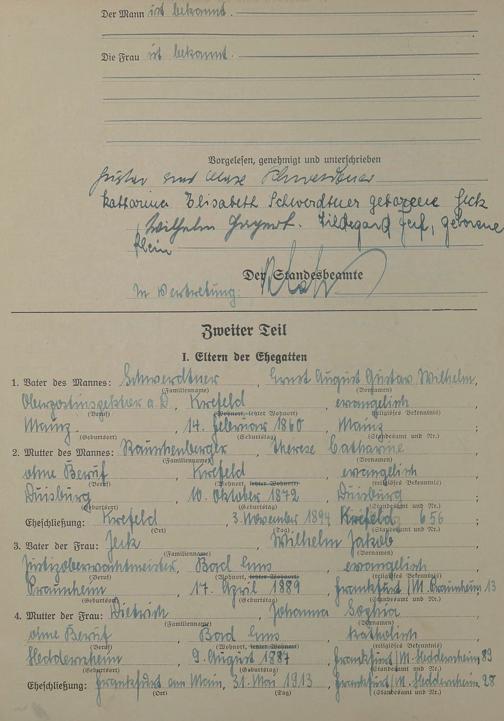 Der Mann ist bekannt.
Die Frau ist bekannt.
Vorgelesen, genehmigt und unterschrieben
Gustav Schwerdtner
Katharina Elisabeth Schwerdtner geborene Jeck
Wilhelm Hildegard geborene
Klein
Der Standesbeamte
In Vertretung:
Zweiter Teil
I. Eltern der Ehegatten
1. Vater des Mannes: Schwerdtner, Ernst August Gustav Wilhelm,
(Familienname) (Vornamen)
Oberpostinspektor a.D., Krefeld, evangelisch
(Beruf) (Wohnort, letzter Wohnort) (religiöses Bekenntnis)
Mainz, 14. Februar 1860 Mainz ;
(Geburtsort) (Geburtstag) (Standesamt und Nr.)
2. Mutter des Mannes: Therese Catharine
(Familienname) (Vornamen)
ohne Beruf, Krefeld, evangelisch
(Beruf) (Wohnort, letzter Wohnort) (religiöses Bekenntnis)
Duisburg, 10. Oktober 1872, Duisburg ;
(Geburtsort) (Geburtstag) (Standesamt und Nr.)
Eheschließung: Krefeld, 3. November 1894 Krefeld 656 ;
(Ort) (Tag) (Standesamt und Nr.)
3. Vater der Frau: Jeck, Wilhelm Jakob
(Familienname) (Vornamen)
Justizoberwachtmeister, Bad Ems, evangelisch
(Beruf) (Wohnort, letzter Wohnort) (religiöses Bekenntnis)
Praunheim, 17. April 1889 Frankfurt/M. Praunheim 13
(Geburtsort) (Geburtstag) (Standesamt und Nr.)
4. Mutter der Frau: Dietrich, Johanna Sophia
(Familienname) (Vornamen)
ohne Beruf, Bad Ems, katholisch
(Beruf) (Wohnort, letzter Wohnort) (religiöses Bekenntnis)
Heddernheim, 9. August 1887 Frankfurt/M. Heddernheim 89
(Geburtsort) (Geburtstag) (Standesamt und Nr.)
Eheschließung: Frankfurt am Main, 31. Mai 1913, Frankfurt/M. Heddernheim 28
(Ort) (Tag) (Standesamt und Nr.)